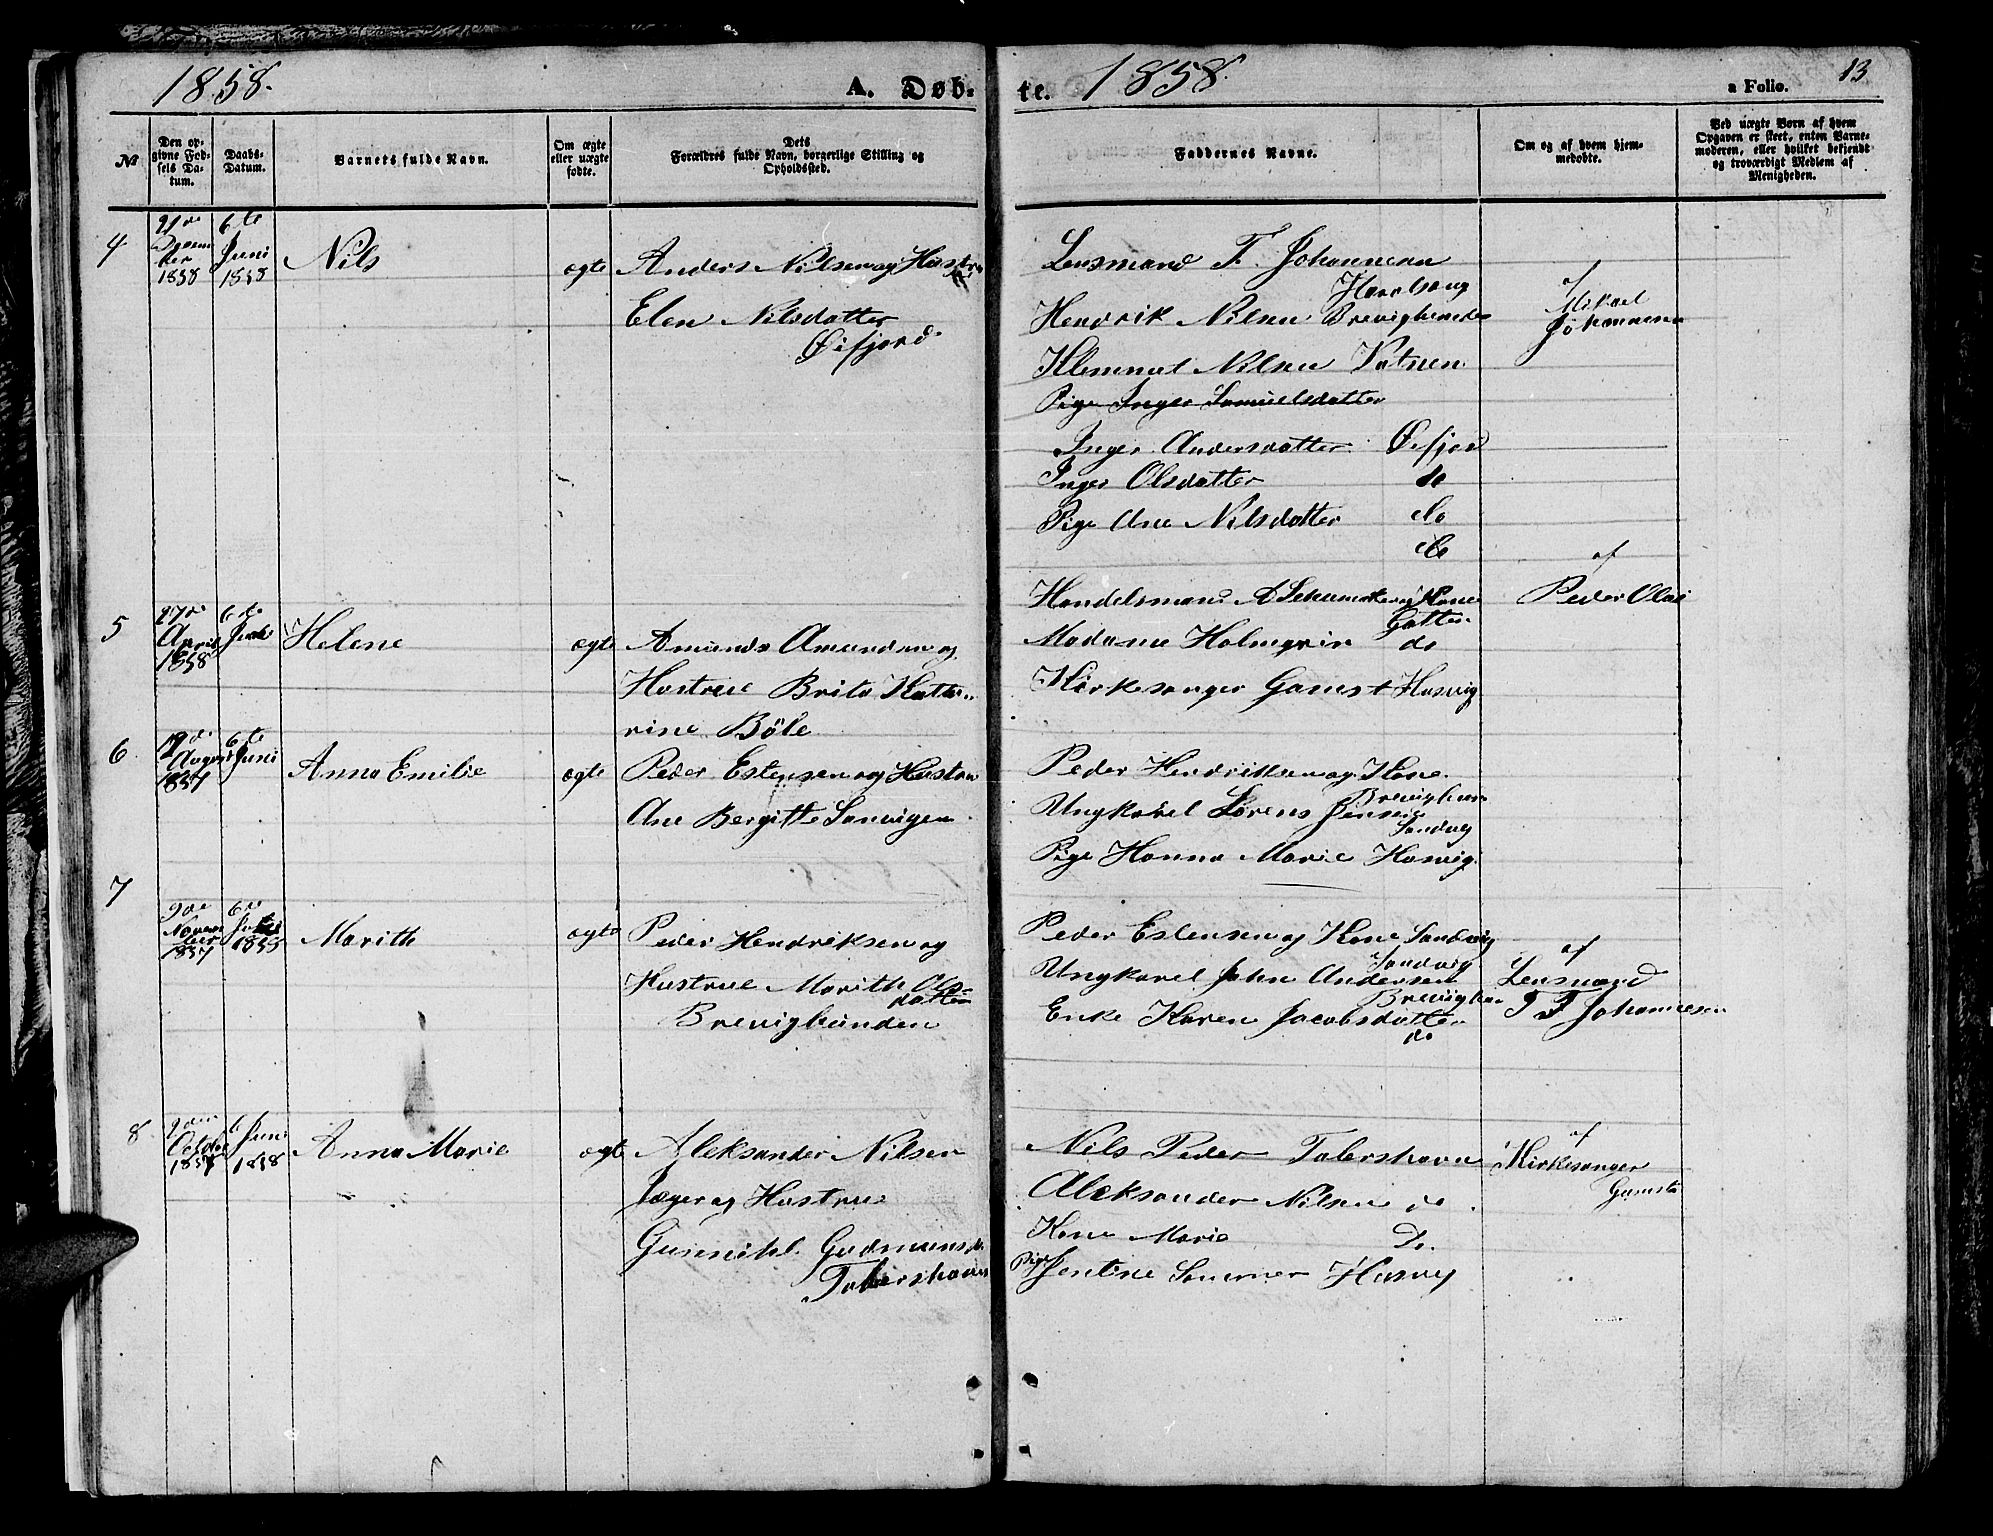 1858.
A. Døb-
te.
1858.
a Folio.
13
№
Den op-
givne Fød-
sels Da-
tum.
Daabs-
Datum.
Barnets fulde Navn.
Om ægte
eller uægte
fødte.
Dets
Forældres fulde Navn, borgerlige Stilling og
Opholdssted.
Faddernes Navne.
Om og af hvem hjem-
medøbte.
Ved uægte Børn af hvem
Opgaven er skeet, enten Barne-
moderen, eller hvilket bekjendt
og troværdigt Medlem af
Menigheden.
4
1858
6te
Juni
1858
Nils
ægte
Anders Nilsen og Hustru
Elen Nilsdatter
Øifjord
Lensmand F. Johannesen
Hendrik Nilsen
Klemmet Nilsen Vatnen
Pige Inger Samuelsdatter
Inger Andersdatter Øifjord
Inger Olsdatter do
Pige Ane Nilsdatter do
do
af
Mikael
Johannesen
5
27de
April
1858
6te
Juni
Helene
ægte
Amund Amundsen og
Hustrue Brita Kathe-
rine Bøle
Handelsmand A og Kone
Madame Holmgrin do
Kirkesanger Gamst Hasvig
af
Peder Olai
6
August
1857
6te
Juni
Anna Emilie
ægte
Peder Estensen og Hustru
Ane Bergitte Sanvigen
Peder Hendriksen og Kone
Ungkarel Sørens Jensen
Sandvig
Pige Hanna Marie Hasvig
7
9de
Novem
ber
1857
6te
1858
Marith
ægte
Peder Hendriksen og
Hustrue Marith Ols-
datter
Brevigbunden
Peder Estensen og Kone Sandvig
Sandvig
Ungkarel John Andersen
Enke Karen Jacobsdatter
do
af
Lensmand
F Johannesen
8
October
1857
6
Juni
1858
Anna Marie
ægte
Aleksander Nilsen
Jæger og Hustrue
Gudmunsd
Tabershavn
Nils Peder Tabershavn
Aleksander Nilsen do
Kone Marie Do.
Pige Jentine Sommer Hasvig
af
Kirkesanger
Gamst